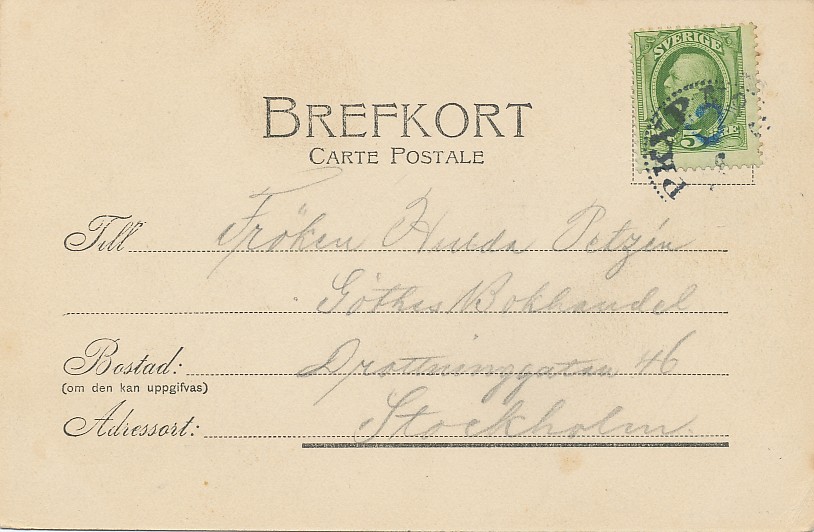 SVERIGE
5 ÖRE
PKXP
BREFKORT
CARTE POSTALE
Till Fröken Hulda Petzén
Göthes Bokhandel
Bostad: Drottninggatan 46
(om den kan uppgifvas)
Adressort: Stockholm.